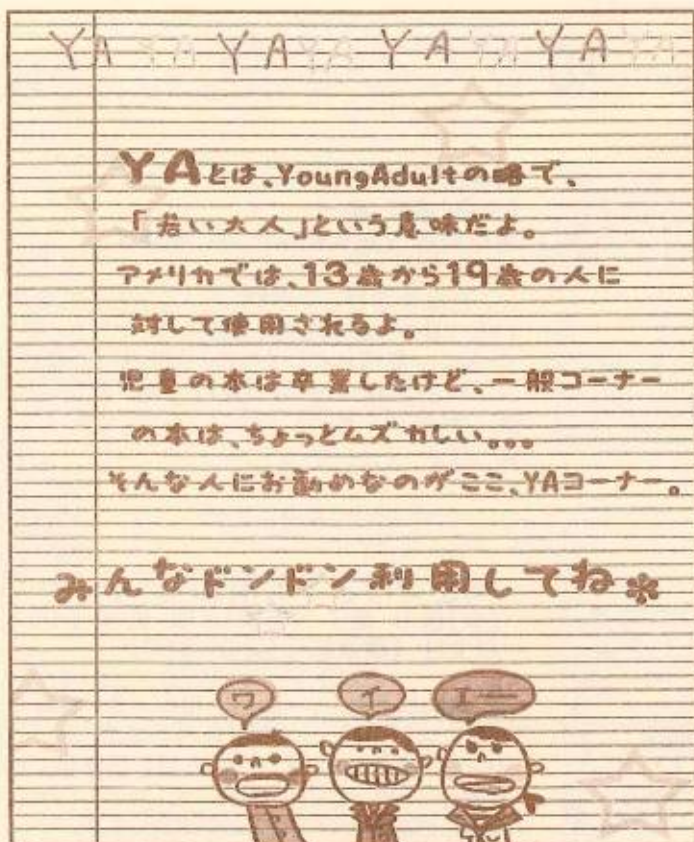 YA YA YA YA YA YA YA YA
YAとは、YoungAdultの略で、
「若い大人」という意味だよ。
アメリカでは、13歳から19歳の人に
対して使用されるよ。
児童の本は卒業したけど、一般コーナー
の本は、ちょっとムズカしい。。。
そんな人にお勧めなのがここ、YAコーナー。
みんなドンドン利用してね*
ワ イ エー